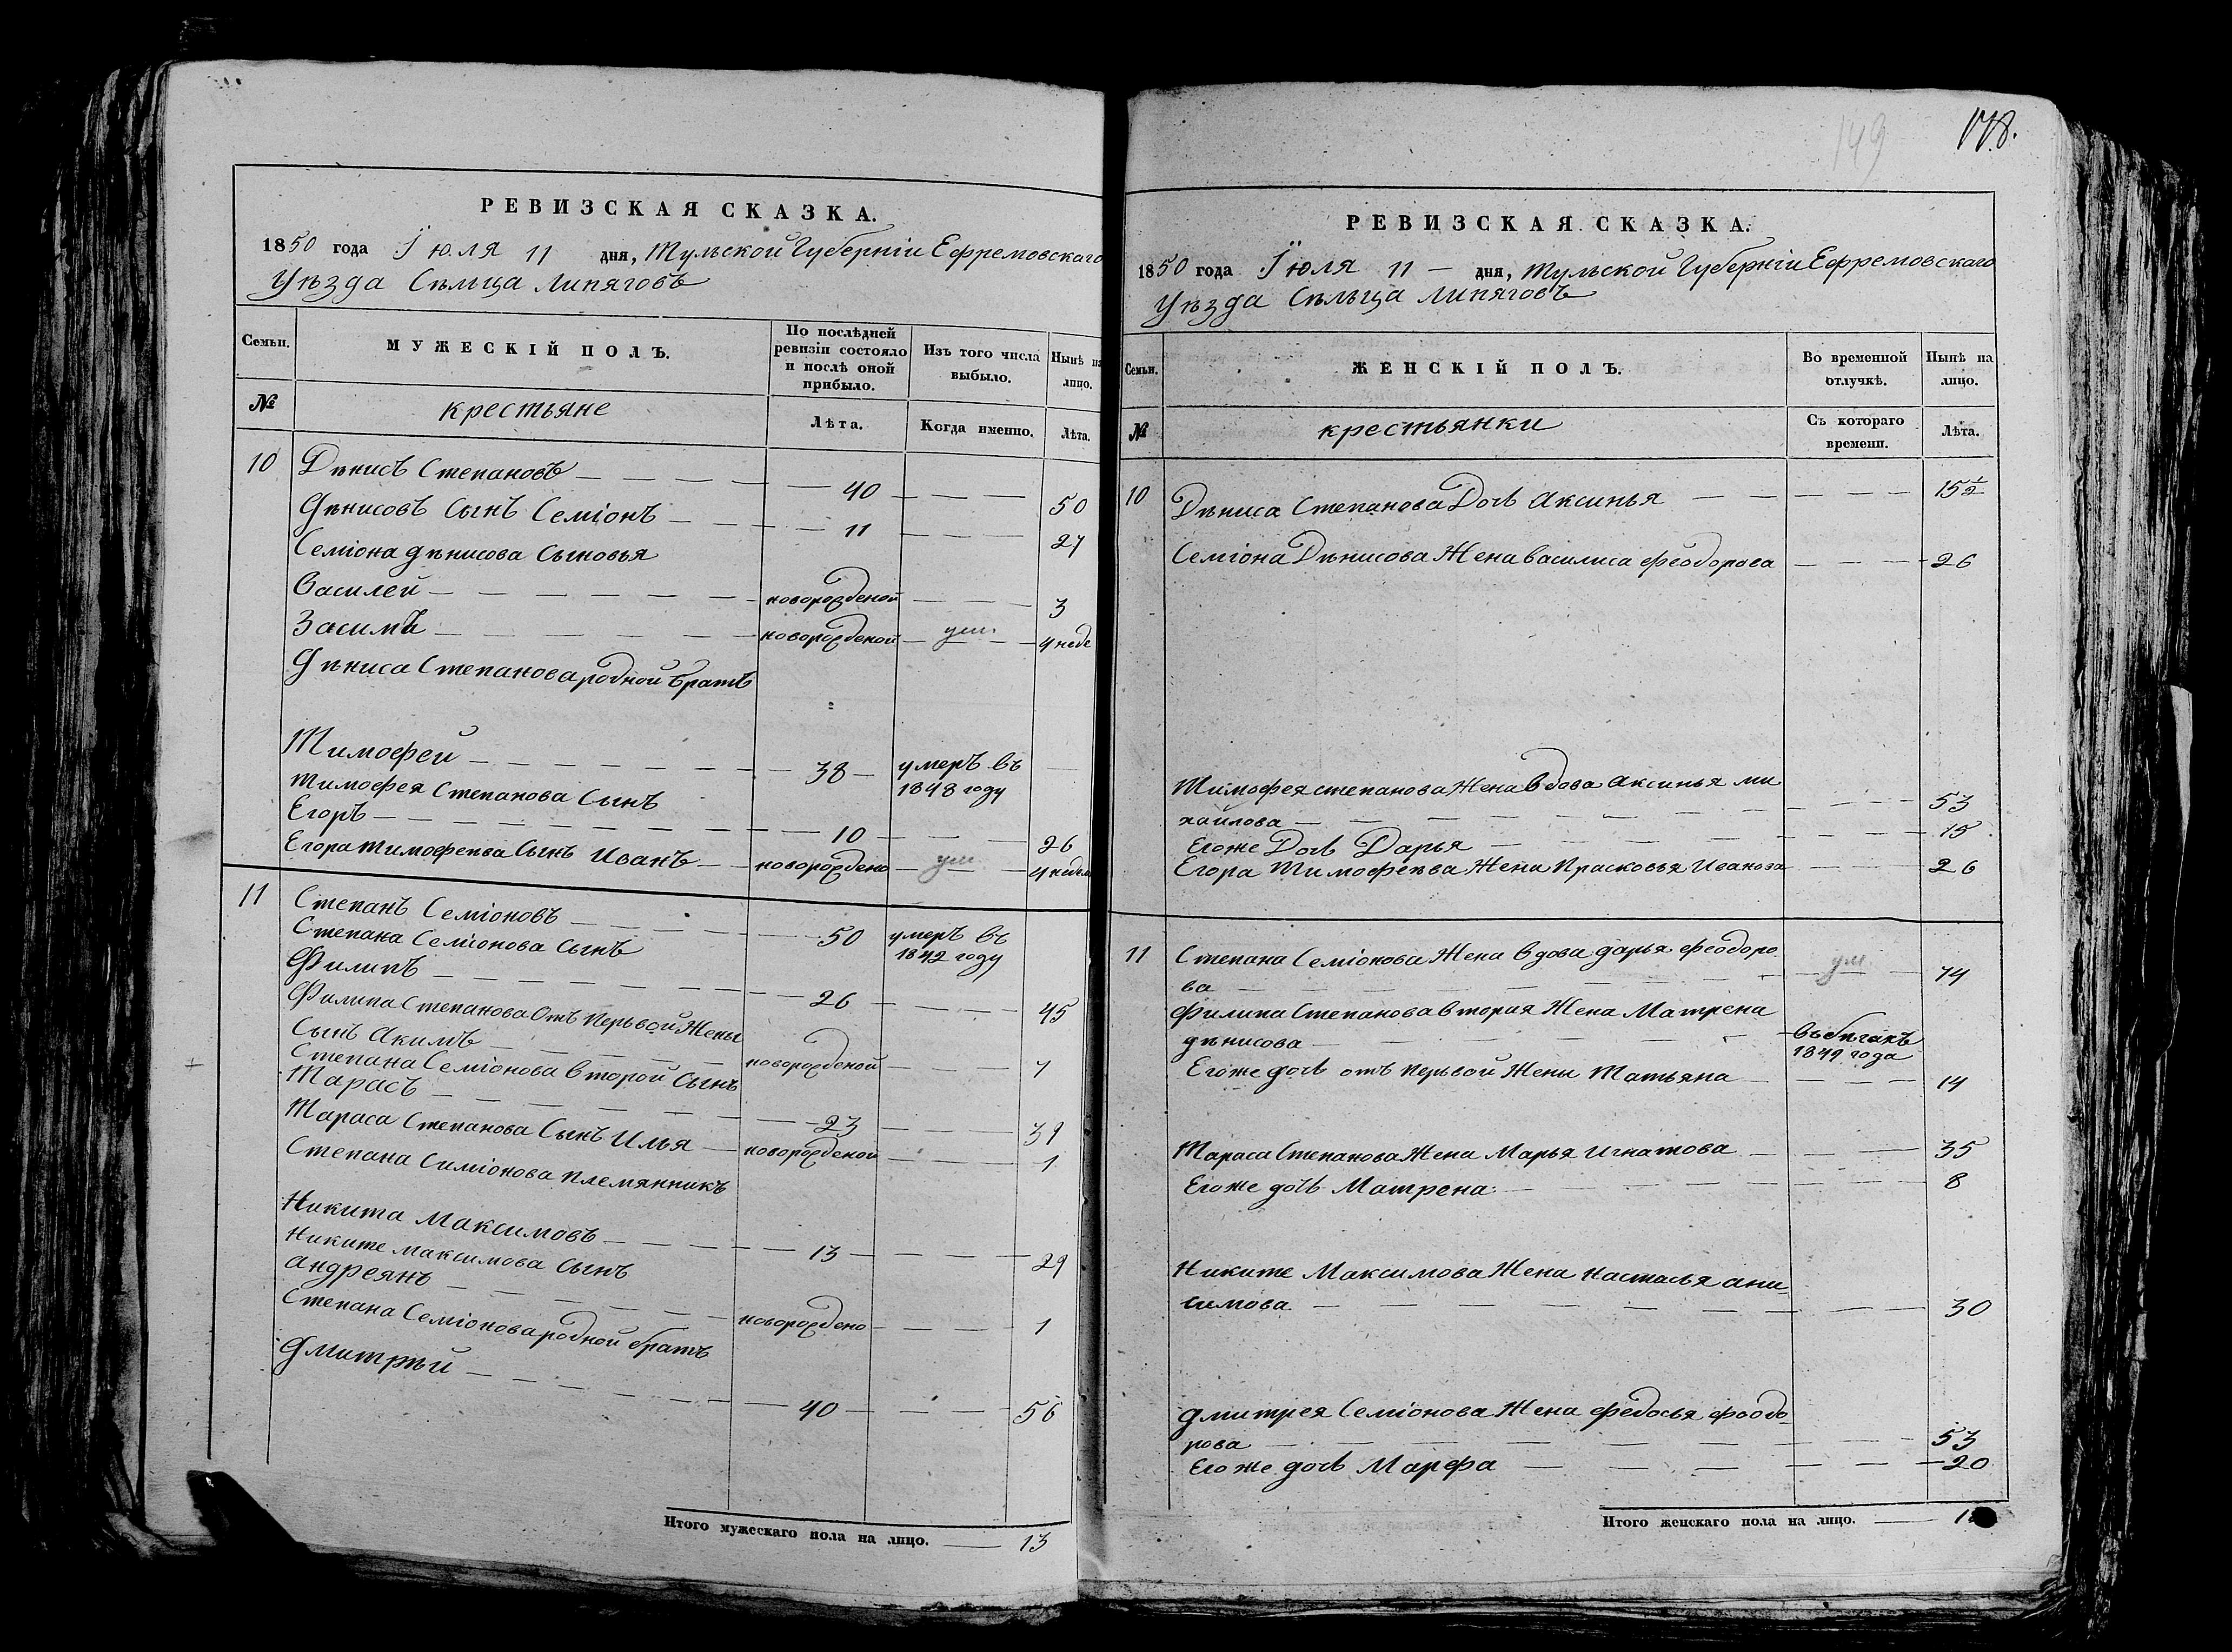 РЕВИЗСКАЯ СКАЗКА.
1850 года Iюля 11 дня, Тульской Губернiи Ефремовскаго
Уѣзда Сѣльца Липяговъ
Семьи.
МУЖЕСКIЙ ПОЛЪ.
По послѣдней ревизiи состояло и послѣ оной прибыло.
Изъ того числа выбыло.
Нынѣ на лицо.
№
крестьяне
Лѣта.
Когда именно.
Лѣта.
10 Дѣнисъ Степановъ 40 50
Дѣнисовъ Сынъ Семiонъ 11 27
Семiона дѣнисова Сыновья
Василей новорожденой 3
Засимъ новорожденой ум. 4 неде
Дѣниса Степанова родной братъ
Тимофей 38 умеръ въ 1848 году
Тимофея Степанова Сынъ
Егоръ 10 26
Егора тимофеѣва Сынъ Иванъ новорождено ум 4 недел
11 Степанъ Семiоновъ 50 умеръ въ 1842 году
Степана Семiонова Сынъ
Филипъ 26 45
Филипа Степанова Отъ перьвой Жены
Сынъ Акимъ новорожденой 7
Степана Семiонова второй Сынъ
Тарасъ 23 39
Тараса Степанова Сынъ Илья новорожденой 1
Степана Симiонова племянникъ
Никита Максимовъ 13 29
Никите максимова Сынъ
андреянъ новорождено 1
Степана Семiонова родной братъ
Дмитрѣй 40 56
Итого мужескаго пола на лицо. 13
149 178.
РЕВИЗСКАЯ СКАЗКА.
1850 года Iюля 11 дня, Тульской Губернiи Ефремовскаго
Уѣзда Сѣльца Липяговъ
Семьи.
ЖЕНСКIЙ ПОЛЪ.
Во временной отлучкѣ.
Нынѣ на лицо.
№
крестьянки
Съ котораго времени.
Лѣта.
10 Дѣниса Степанова Дочь Аксинья 15 1/2
Семiона Дѣнисова Жена василиса феодорова 26
Тимофея степанова Жена вдова аксинья ми
хайлова 53
Егоже Дочь Дарья 15
Егора Тимофеѣва Жена Прасковья Иванова 26
11 Степана Семiонова Жена вдова дарья феодоро
ва ум. 74
Филипа Степанова вторая Жена Матрена
дѣнисова въбѣгахъ 1849 года
Егоже дочь отъ перьвой Жены Татьяна 14
Тараса Степанова Жена Марья Игнатова 35
Егоже дочь Матрена 8
Никите Максимова Жена настасья ани
симова 30
Дмитрея Семiонова Жена федосья феодо
рова 53
Его же дочь Марфа 20
Итого женскаго пола на лицо.